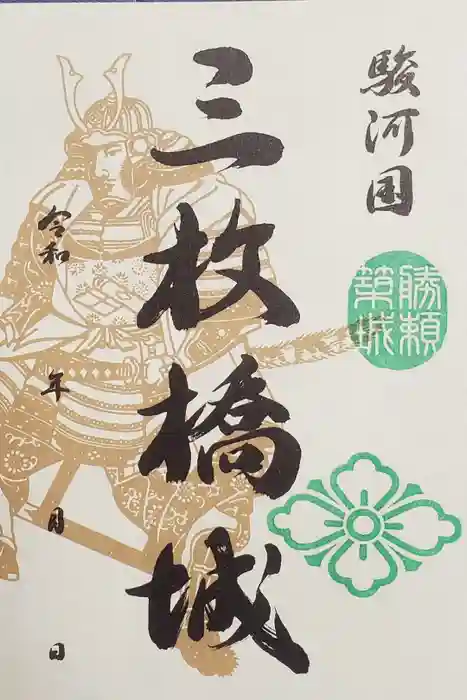 駿河国
勝頼
築城
三枚橋城
令和 年 月 日